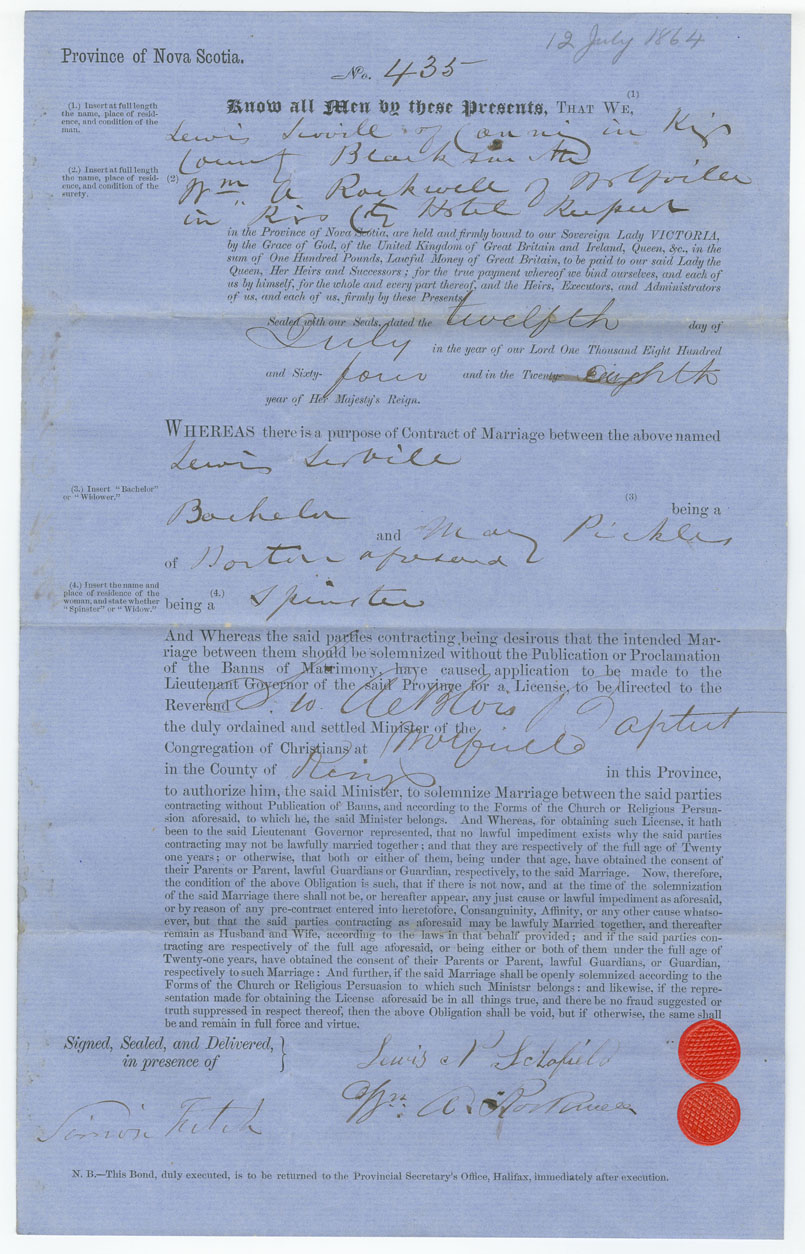 12 July 1864
Province of Nova Scotia.
No. 435
(1.) Insert at full length
the name, place of resid-
ence, and condition of the
man.
Know all Men by these Presents, THAT WE, (1)
Lewis of Canning in Kings
County Blacksmith
(2.) Insert at full length
the name, place of resid-
ence, and condition of the
surety.
(2) Wm A Rockwell of Wolfville
in Kings Cty Hotel Keeper
in the Province of Nova Scotia, are held and firmly bound to our Sovereign Lady VICTORIA,
by the Grace of God, of the United Kingdom of Great Britain and Ireland, Queen, &c., in the
sum of One Hundred Pounds, Lawful Money of Great Britain, to be paid to our said Lady the
Queen, Her Heirs and Successors; for the true payment whereof we bind ourselves, and each of
us by himself, for the whole and every part thereof, and the Heirs, Executors, and Administrators
of us, and each of us, firmly by these Presents.
Sealed with our Seals, dated the twelfth day of
July in the year of our Lord One Thousand Eight Hundred
and Sixty-four and in the Twenty-eighth
year of Her Majesty's Reign.
WHEREAS there is a purpose of Contract of Marriage between the above named
Lewis
(3.) Insert "Bachelor"
or "Widower."
(3) being a
Bachelor and Mary Pickles
of Horton aforesaid
(4.) Insert the name and
place of residence of the
woman, and state whether
"Spinster" or "Widow."
being a (4.) Spinster
And Whereas the said parties contracting being desirous that the intended Mar-
riage between them should be solemnized without the Publication or Proclamation
of the Banns of Matrimony, have caused application to be made to the
Lieutenant Governor of the said Province for a License, to be directed to the
Reverend S. W. DeBlois
the duly ordained and settled Minister of the Baptist
Congregation of Christians at Wolfville
in the County of Kings in this Province,
to authorize him, the said Minister, to solemnize Marriage between the said parties
contracting without Publication of Banns, and according to the Forms of the Church or Religious Persua-
sion aforesaid, to which he, the said Minister belongs. And Whereas, for obtaining such License, it hath
been to the said Lieutenant Governor represented, that no lawful impediment exists why the said parties
contracting may not be lawfully married together; and that they are respectively of the full age of Twenty
one years; or otherwise, that both or either of them, being under that age, have obtained the consent of
their Parents or Parent, lawful Guardians or Guardian, respectively, to the said Marriage. Now, therefore,
the condition of the above Obligation is such, that if there is not now, and at the time of the solemnization
of the said Marriage there shall not be, or hereafter appear, any just cause or lawful impediment as aforesaid,
or by reason of any pre-contract entered into heretofore, Consanguinity, Affinity, or any other cause whatso-
ever, but that the said parties contracting as aforesaid may be lawfuly Married together, and thereafter
remain as Husband and Wife, according to the laws in that behalf provided; and if the said parties con-
tracting are respectively of the full age aforesaid, or being either or both of them under the full age of
Twenty-one years, have obtained the consent of their Parents or Parent, lawful Guardians, or Guardian,
respectively to such Marriage: And further, if the said Marriage shall be openly solemnized according to the
Forms of the Church or Religious Persuasion to which such Ministsr belongs: and likewise, if the repre-
sentation made for obtaining the License aforesaid be in all things true, and there be no fraud suggested or
truth suppressed in respect thereof, then the above Obligation shall be void, but if otherwise, the same shall
be and remain in full force and virtue.
Signed, Sealed, and Delivered,
in presence of
Lewis N Schofield
Wm. A. Rockwell
Simon Fitch
N. B.—This Bond, duly executed, is to be returned to the Provincial Secretary's Office, Halifax, immediately after execution.